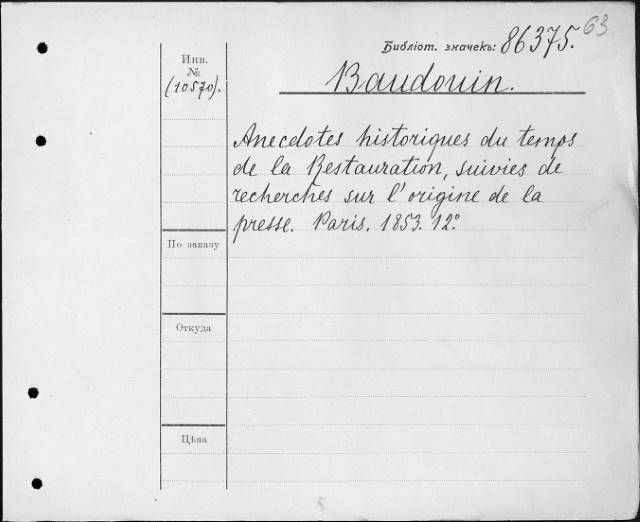 63
Библіот. значекъ: 86375.
Инв.
№
(10570).
Baudouin.
Anecdotes historiques du temps
de la Restauration, suivies de
recherches sur l'origine de la
presse. Paris. 1853. 12º
По заказу
Откуда
Цѣна